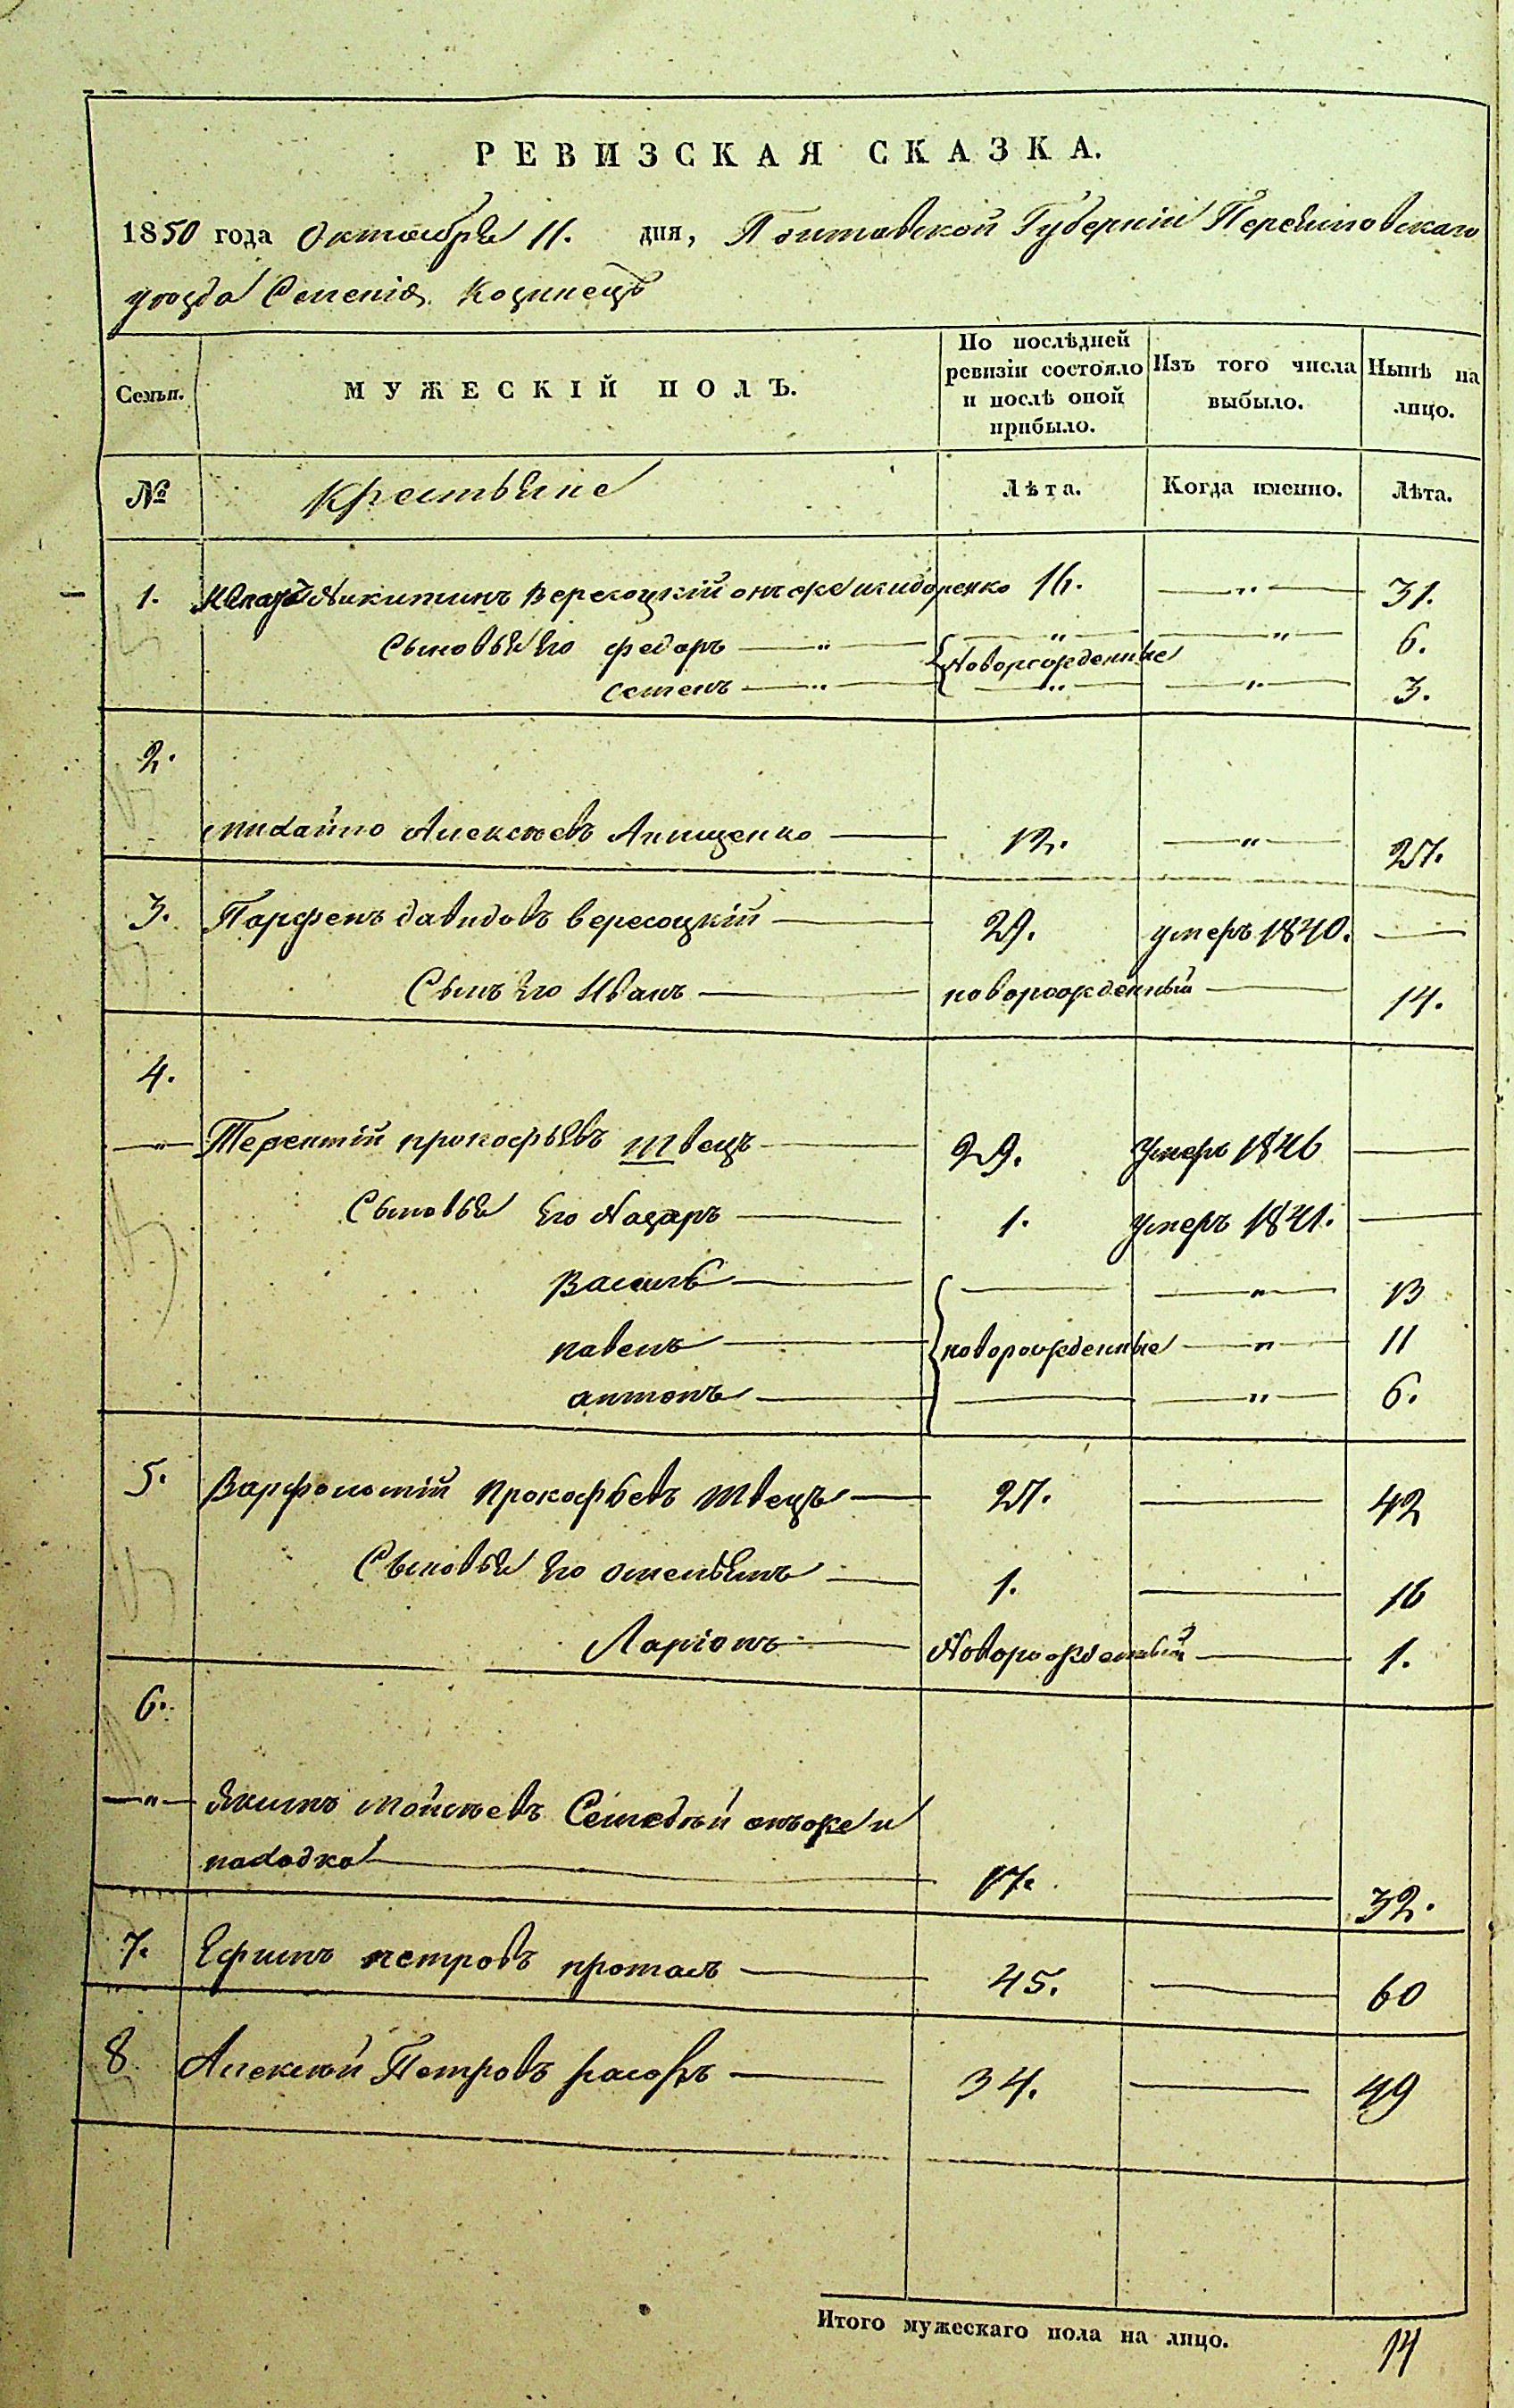 РЕВИЗСКАЯ СКАЗКА.
1850 года Октября 11. дня, Полтавской Губерніи Перешиловскаго
уѣзда Селенія
Семьи. МУЖЕСКІЙ ПОЛЪ. По послѣдней ревизіи состояло и послѣ оной прибыло. Изъ того числа выбыло. Нынѣ на лицо.
№ Крестьяне Лѣта. Когда именно. Лѣта.
1. Никитинъ Вересоцкій онъ же 16. — " — 31.
Сыновья Его федоръ — " — — " — — " — 6.
Новорожденные
семенъ — " — — " — — " — 3.
2.
михайло Алексѣевъ Анищенко — 12. — " — 27.
3. Парфенъ давидовъ вересоцкій — 29. умеръ 1840. —
Сынъ Его Иванъ — новорожденный — 14.
4.
— " — Терентій прокофьевъ швецъ — 29. Умеръ 1846 —
Сыновья Его Назаръ — 1. умеръ 1841. —
Василь — — — " — 13
павелъ — новорожденные — " — 11
антонъ — — — " — 6.
5. Варфоломій Прокофьевъ Швецъ — 27. — 42
Сыновья Его омельянъ — 1. — 16
Ларіонъ — Новорожденный — 1.
6.
— " — Якимъ мойсѣевъ онъ же и
находка — 17. — 32.
7. Ефимъ петровъ — 45. — 60
8. Алексѣй Петровъ — 34. — 49
Итого мужескаго пола на лицо. 14